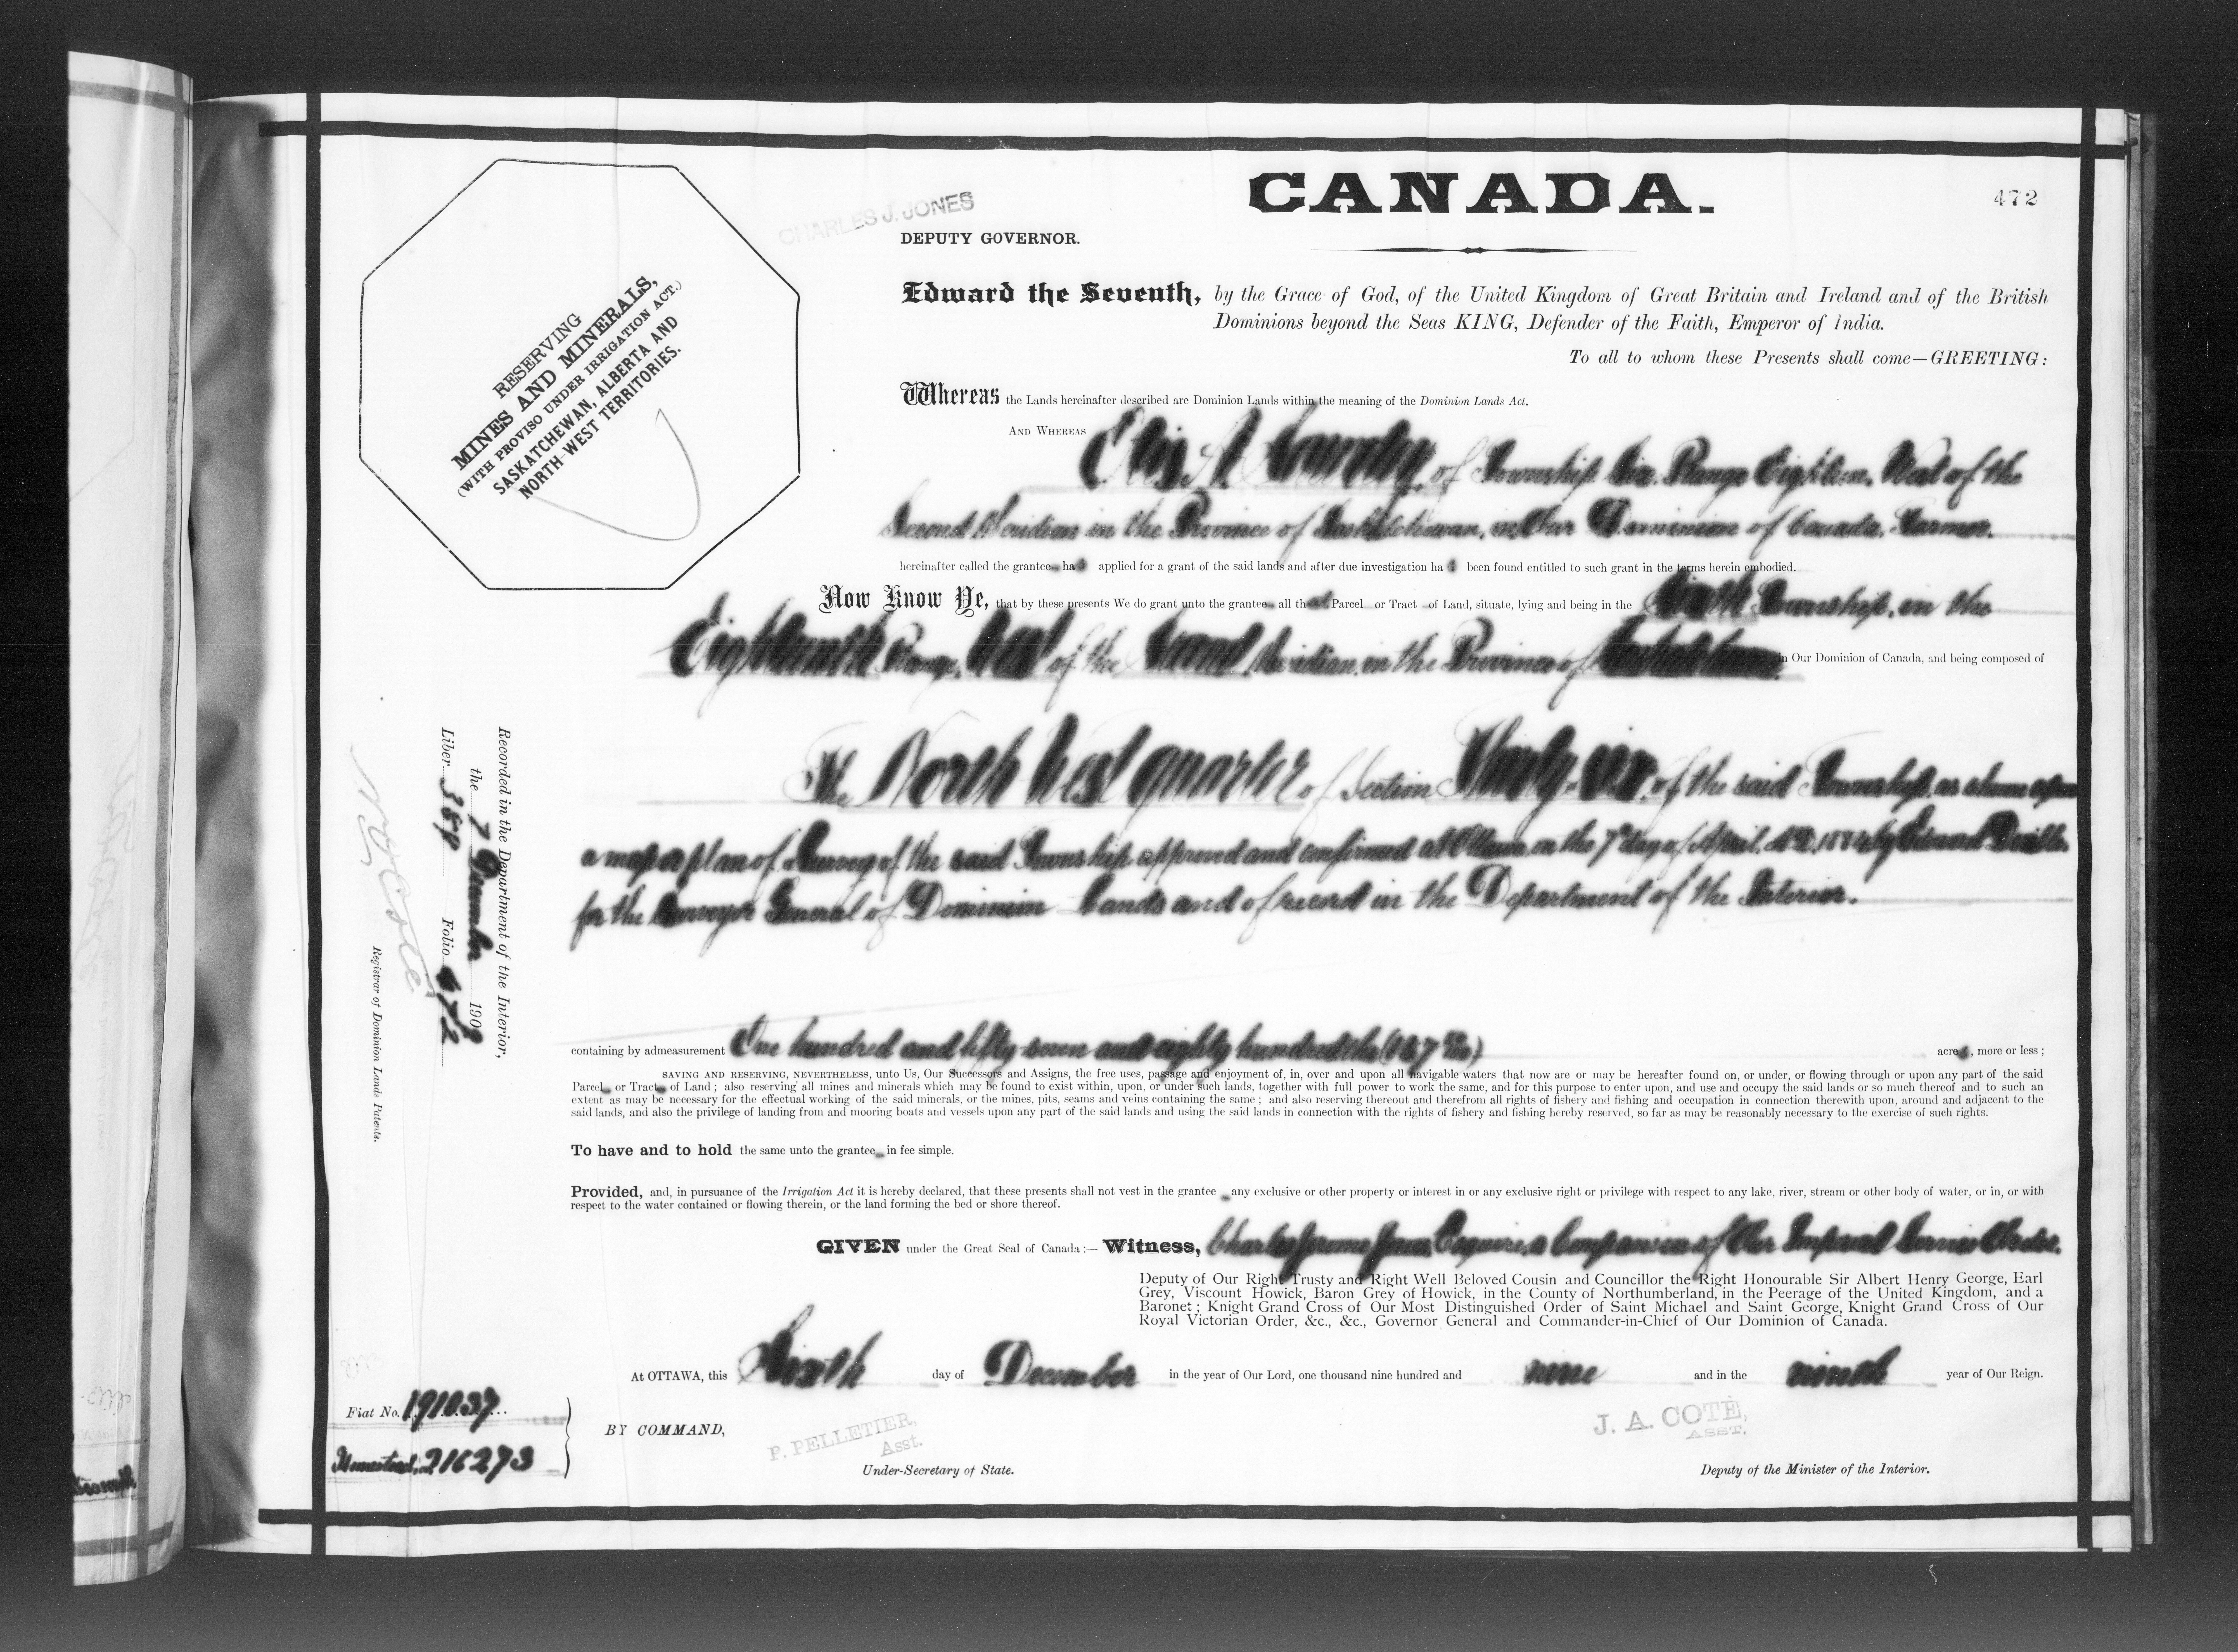 CANADA.
472
CHARLES J. JONES
DEPUTY GOVERNOR.
RESERVING
MINES AND MINERALS,
(WITH PROVISO UNDER IRRIGATION ACT.)
SASKATCHEWAN, ALBERTA AND
NORTH-WEST TERRITORIES.
Edward the Seventh, by the Grace of God, of the United Kingdom of Great Britain and Ireland and of the British
Dominions beyond the Seas KING, Defender of the Faith, Emperor of India.
To all to whom these Presents shall come—GREETING:
Whereas the Lands hereinafter described are Dominion Lands within the meaning of the Dominion Lands Act.
AND WHEREAS A of Township Six, Range Eighteen, West of the
Second Meridian in the Province of Saskatchewan, in Our Dominion of Canada, Farmer,
hereinafter called the grantee has applied for a grant of the said lands and after due investigation has been found entitled to such grant in the terms herein embodied.
Now Know Ye, that by these presents We do grant unto the grantee all that Parcel or Tract of Land, situate, lying and being in the Sixth Township, in the
Eighteenth Range, West of the Second Meridian, in the Province of Saskatchewan in Our Dominion of Canada, and being composed of
The North West quarter of Section Thirty-six, of the said Township, as shown upon
a map or plan of Survey of the said Township approved and confirmed at Ottawa, on the 7th day of April, A.D. 1884, by Edouard Deville,
for the Surveyor General of Dominion Lands and of record in the Department of the Interior.
containing by admeasurement One hundred and fifty seven and eighty hundredths (157 80/100) acres, more or less;
SAVING AND RESERVING, NEVERTHELESS, unto Us, Our Successors and Assigns, the free uses, passage and enjoyment of, in, over and upon all navigable waters that now are or may be hereafter found on, or under, or flowing through or upon any part of the said
Parcel or Tract of Land; also reserving all mines and minerals which may be found to exist within, upon, or under such lands, together with full power to work the same, and for this purpose to enter upon, and use and occupy the said lands or so much thereof and to such an
extent as may be necessary for the effectual working of the said minerals, or the mines, pits, seams and veins containing the same; and also reserving thereout and therefrom all rights of fishery and fishing and occupation in connection therewith upon, around and adjacent to the
said lands, and also the privilege of landing from and mooring boats and vessels upon any part of the said lands and using the said lands in connection with the rights of fishery and fishing hereby reserved, so far as may be reasonably necessary to the exercise of such rights.
To have and to hold the same unto the grantee in fee simple.
Provided, and, in pursuance of the Irrigation Act it is hereby declared, that these presents shall not vest in the grantee any exclusive or other property or interest in or any exclusive right or privilege with respect to any lake, river, stream or other body of water, or in, or with
respect to the water contained or flowing therein, or the land forming the bed or shore thereof.
GIVEN under the Great Seal of Canada:— Witness, Charles Jerome Jones, Esquire, a Companion of Our Imperial Service Order,
Deputy of Our Right Trusty and Right Well Beloved Cousin and Councillor the Right Honourable Sir Albert Henry George, Earl
Grey, Viscount Howick, Baron Grey of Howick, in the County of Northumberland, in the Peerage of the United Kingdom, and a
Baronet; Knight Grand Cross of Our Most Distinguished Order of Saint Michael and Saint George, Knight Grand Cross of Our
Royal Victorian Order, &c., &c., Governor General and Commander-in-Chief of Our Dominion of Canada.
At OTTAWA, this Sixth day of December in the year of Our Lord, one thousand nine hundred and nine and in the ninth year of Our Reign.
BY COMMAND,
P. PELLETIER,
Asst.
Under-Secretary of State.
J. A. COTE,
ASST.
Deputy of the Minister of the Interior.
Recorded in the Department of the Interior,
the 7 December 1909
Liber 389 Folio 472
N O Coté
Registrar of Dominion Lands Patents.
Fiat No. 191037
Homestead 216273